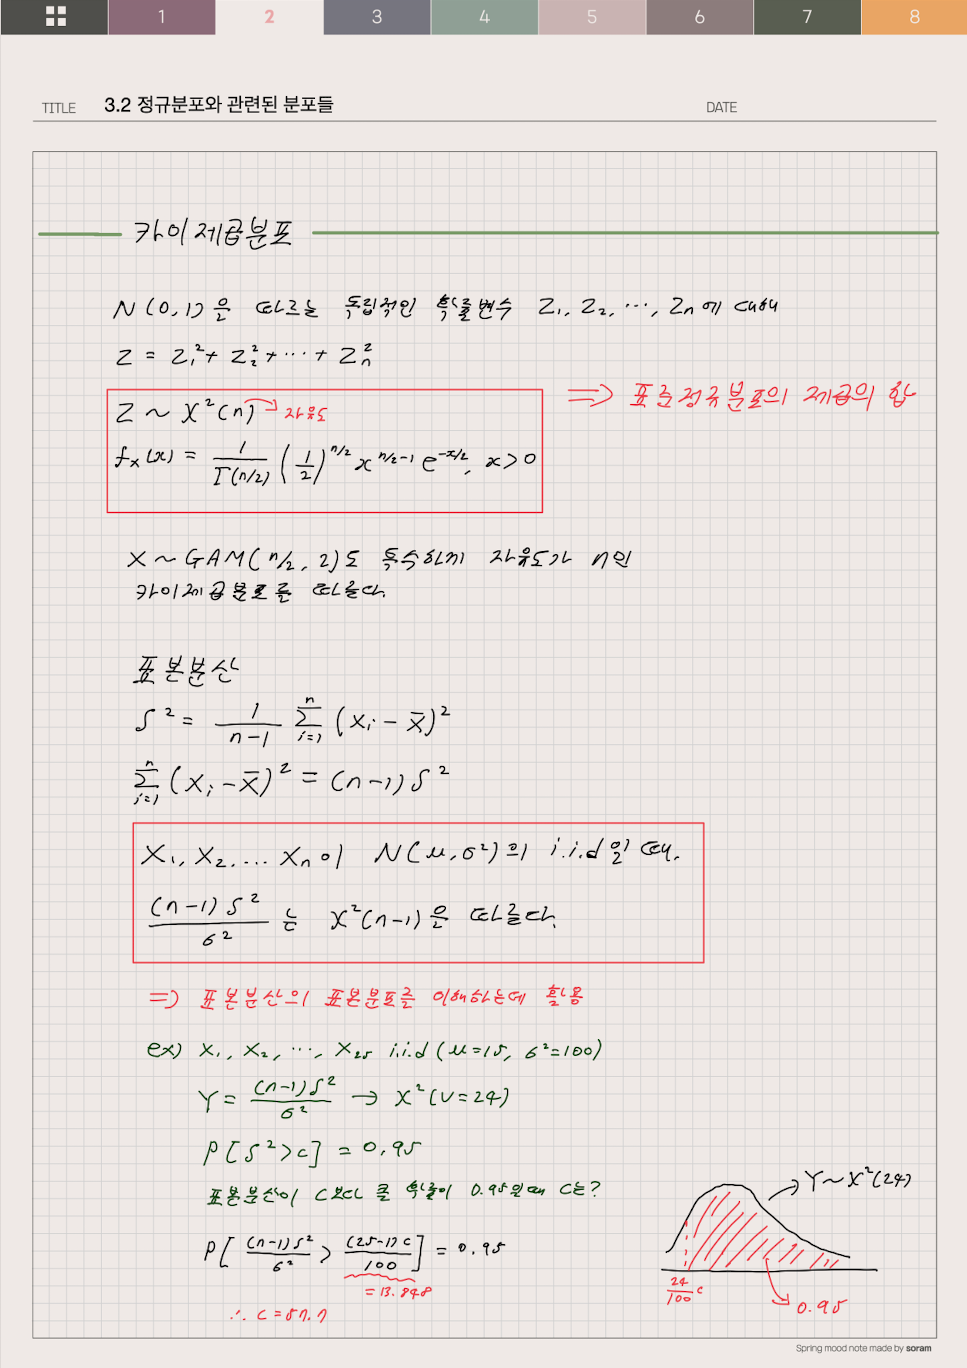 1 2 3 4 5 6 7 8
TITLE 3.2 정규분포와 관련된 분포들 DATE
카이제곱분포
N(0,1)을 따르는 독립적인 확률변수 Z₁, Z₂, ⋯, Zn에 대해
Z = Z₁² + Z₂² + ⋯ + Zn²
Z ~ X²(n) → 자유도
⇒ 표준정규분포의 제곱의 합
fx(x) = 1/Γ(n/2) (1/2)^(n/2) x^(n/2-1) e^(-x/2), x>0
X ~ GAM(n/2, 2)도 특수하게 자유도가 n인
카이제곱분포를 따른다.
표본분산
S² = 1/(n-1) Σ(i=1..n) (Xi - X̄)²
Σ(i=1..n) (Xi - X̄)² = (n-1)S²
X₁, X₂, ... Xn이 N(μ, σ²)의 i.i.d일 때,
(n-1)S²/σ² 는 X²(n-1)을 따른다.
⇒ 표본분산의 표본분포를 이해하는데 활용
ex) X₁, X₂, ⋯, X₂₅ i.i.d (μ=15, σ²=100)
Y = (n-1)S²/σ² → X²(v=24)
P[S²>c] = 0.95
표본분산이 c보다 클 확률이 0.95일때 c는?
P[(n-1)S²/σ² > (25-1)c/100] = 0.95
= 13.848
∴ c = 57.7
Y~X²(24)
24/100 c
0.95
Spring mood note made by soram